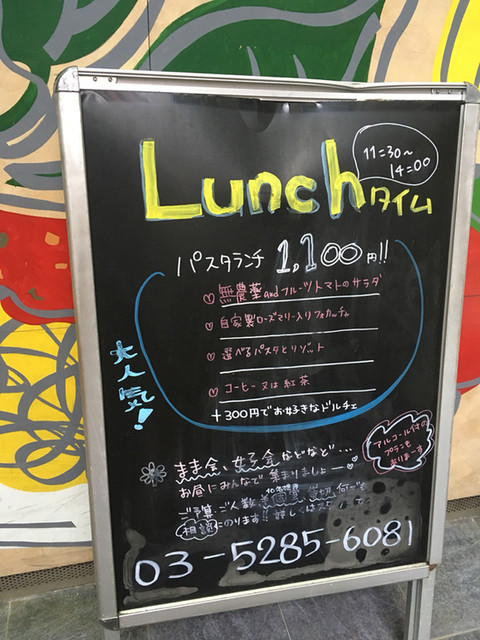 Lunchタイム
11:30~
14:00
パスタランチ 1,100円!!
♡ 無農薬andフルーツトマトのサラダ
♡ 自家製ローズマリー入りフォカッチャ
♡ 選べるパスタとリゾット
♡ コーヒー又は紅茶
+300円でお好きなドルチェ
大人気!
アルコール付の
プランも
ありまーす
まま会、女子会などなど…
お昼にみんなで集まりましょー♡
ご予算、ご人数、何でも
相談にのります!! 詳しくは
03-5285-6081